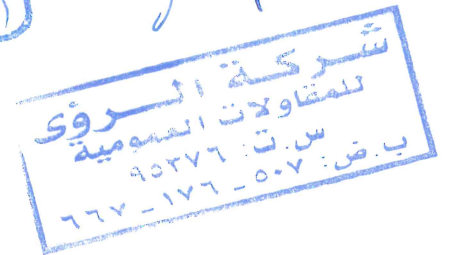 شركة الرؤى
للمقاولات العمومية
س.ت: ٩٥٢٧٦
ب.ض: ٥٠٧ - ١٧٦ - ٦٦٧